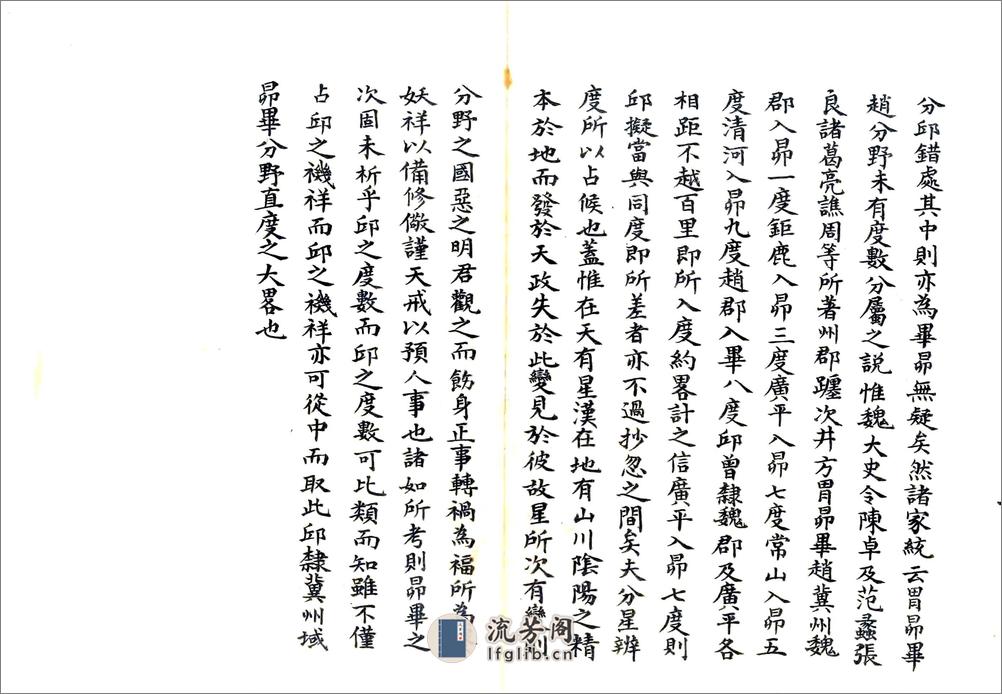 分邱錯處其中則亦為畢昴無疑矣然諸家統云胃昴畢
趙分野未有度數分屬之説惟魏大史令陳卓及范蠡張
良諸葛亮譙周等所著州郡躔次井方胃昴畢趙冀州魏
郡入昴一度鉅鹿入昴三度廣平入昴七度常山入昴五
度清河入昴九度趙郡入畢八度邱曾隸魏郡及廣平各
相距不越百里即所入度約畧計之信廣平入昴七度則
邱擬當與同度即所差者亦不過抄忽之間矣夫分星辨
度所以占候也蓋惟在天有星漢在地有山川陰陽之精
本於地而發於天政失於此變見於彼故星所次有變則
分野之國惡之明君觀之而飭身正事轉禍為福所為
妖祥以備修儆謹天戒以預人事也諸如所考則昴畢之
次固未析乎邱之度數而邱之度數可比類而知雖不僅
占邱之禨祥而邱之禨祥亦可從中而取此邱隸冀州域
昴畢分野直度之大畧也
流芳阁
lfglib.cn